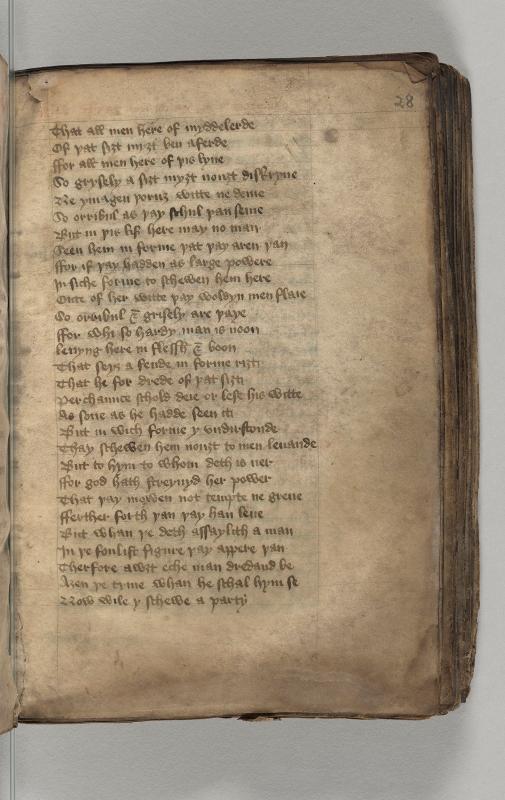 28
That all men here of myddelerde
Of þat siȝt myȝt ben aferde
ffor all men here of þis lyue
So grysely a siȝt myȝt nouȝt discryue
Ne ymagen þoruȝ witte ne deme
So orribul as þay schul þan seme
But in þis lif here may no man
Seen hem in forme þat þay aren þan
ffor if þay hadden as large powere
In siche forme to schewen hem here
Oute of her witte þay woldyn men flaie
So orribul & grisely are þaye
ffor whi so hardy man is noon
leuyng here in flessh & boon
That seyȝ a fende in forme riȝt
That he for drede of þat siȝt
Perchaunce schold deie or lese his witte
As sone as he hadde seen it
But in wich forme y vndirstonde
Thay schewen hem nouȝt to men leuande
But to hym to whom deth is ner
ffor god hath streynyd her power
That þay mowen not tempte ne greue
fferther forth þan þay han leue
But whan þe deth assaylith a man
In þe foulist figure þay appere þan
Therfore awȝt eche man dredand be
Aȝen þe tyme whan he schal hym se
Now wile y schewe a party